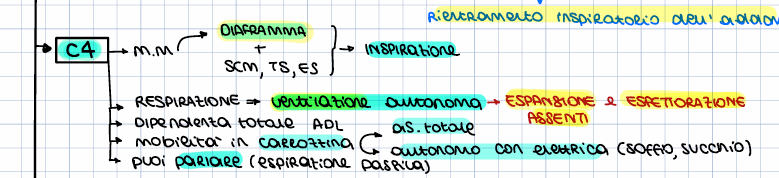 Rientramento inspiratorio dell' addom
C4 → M.M → DIAFRAMMA
+ → INSPIRAZIONE
SCM, TS, ES
RESPIRAZIONE → ventilazione autonoma → ESPANSIONE e ESPETTORAZIONE
ASSENTI
DIPENDENZA totale ADL
as. totale
mobilità in carrozzina
autonomo con elettrica (SOFFIO, SUCCHIO)
puoi parlare (espirazione passiva)